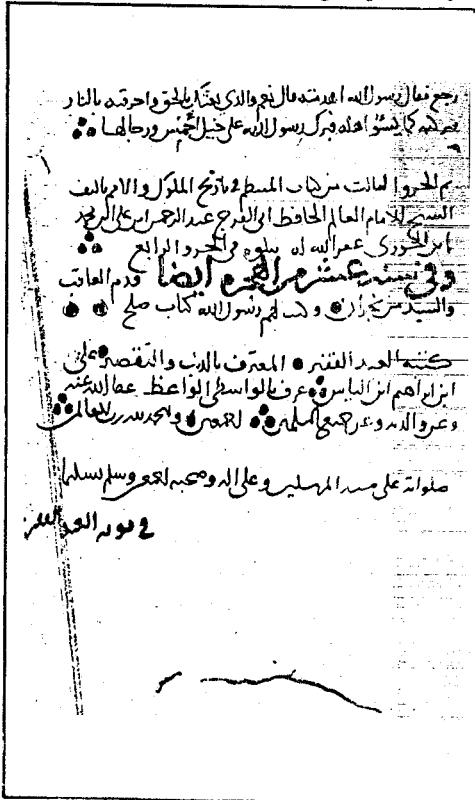 رجع فقال رسول الله اهدمته قال نعم والذي بعثك بالحق واحرقته بالنار
فبرك رسول الله على خيل احمس ورجالها
تم الجزو الثالث من كتاب المنتظم في تاريخ الملوك والامم تاليف
الشيخ الامام العالم الحافظ ابي الفرج عبد الرحمن ابن علي ابن محمد
ابن الجوزي غفر الله له يتلوه في الجزو الرابع
وفي سنه عشر من الهجره ايضا قدم العاقب
والسيد من نجران وكتب لهم رسول الله كتاب صلح
كتبه العبد الفقير المعترف بالذنب والتقصير علي
ابن ابراهيم ابن الياس عرف بالواسطي الواعظ عفا الله عنه
وعن والديه وعن جميع المسلمين اجمعين والحمد لله رب العالمين
صلواته على سيد المرسلين وعلى اله وصحبه اجمعين وسلم تسليما
في نوبه العبد الفقير